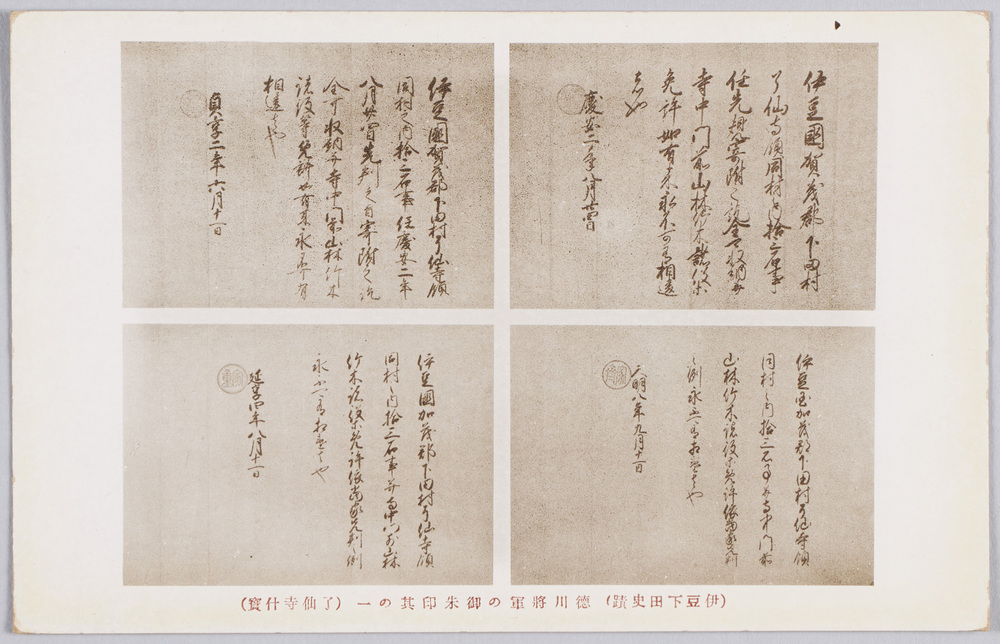 伊豆國賀茂郡下田村
了仙寺領同村之内拾三石事
任先規寄附之訖全可収納并
寺中門前山林竹木諸役等
免許如有来永不可有相違
者也
慶安二年八月廿四日
伊豆國賀茂郡下田村了仙寺領
同村之内拾三石事任慶安二年
八月廿四日先判之旨寄附之訖
全可収納并寺中門前山林竹木
諸役等免許如有来永不可有
相違者也
貞享二年六月十一日
伊豆国加茂郡下田村了仙寺領
同村之内拾三石事并寺中門前
山林竹木諸役等免許依當家先判
之例永不可有相違者也
天明八年九月十一日
伊豆國加茂郡下田村了仙寺領
同村之内拾三石事并寺中門前山林
竹木諸役等免許依當家先判之例
永不可有相違者也
延享四年八月十一日
(伊豆下田史蹟) 德川將軍の御朱印其の一 (了仙寺什寶)